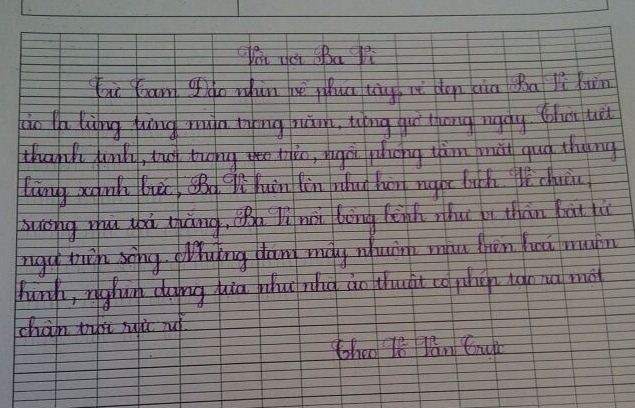 Vời vợi Ba Vì
Từ Tam Đảo nhìn về phía tây, vẻ đẹp của Ba Vì biến
ảo lạ lùng từng mùa trong năm, từng giờ trong ngày. Thời tiết
thanh tịnh, trời trong trẻo, ngồi phóng tầm mắt qua thung
lũng xanh biếc, Ba Vì hiện lên như hòn ngọc bích. Về chiều,
sương mù toả trắng, Ba Vì nổi bồng bềnh như vị thần bất tử
ngự trên sóng. Những đám mây nhuộm màu biến hoá muôn
hình, nghìn dạng tựa như nhà ảo thuật có phép tạo ra một
chân trời rực rỡ.
Theo Võ Văn Trực